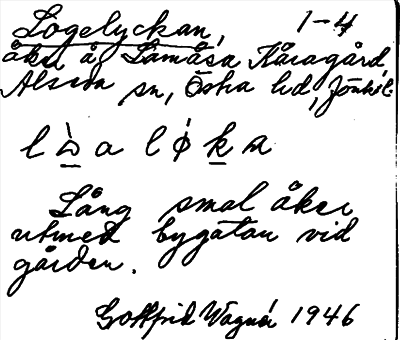 Logelyckan, 1-4
åker å Lamåsa Kåragård,
Alseda sn, Östra hd, Jönk.l.
Lång smal åker
utmed bygatan vid
gården.
Gottfrid Wagnér 1946